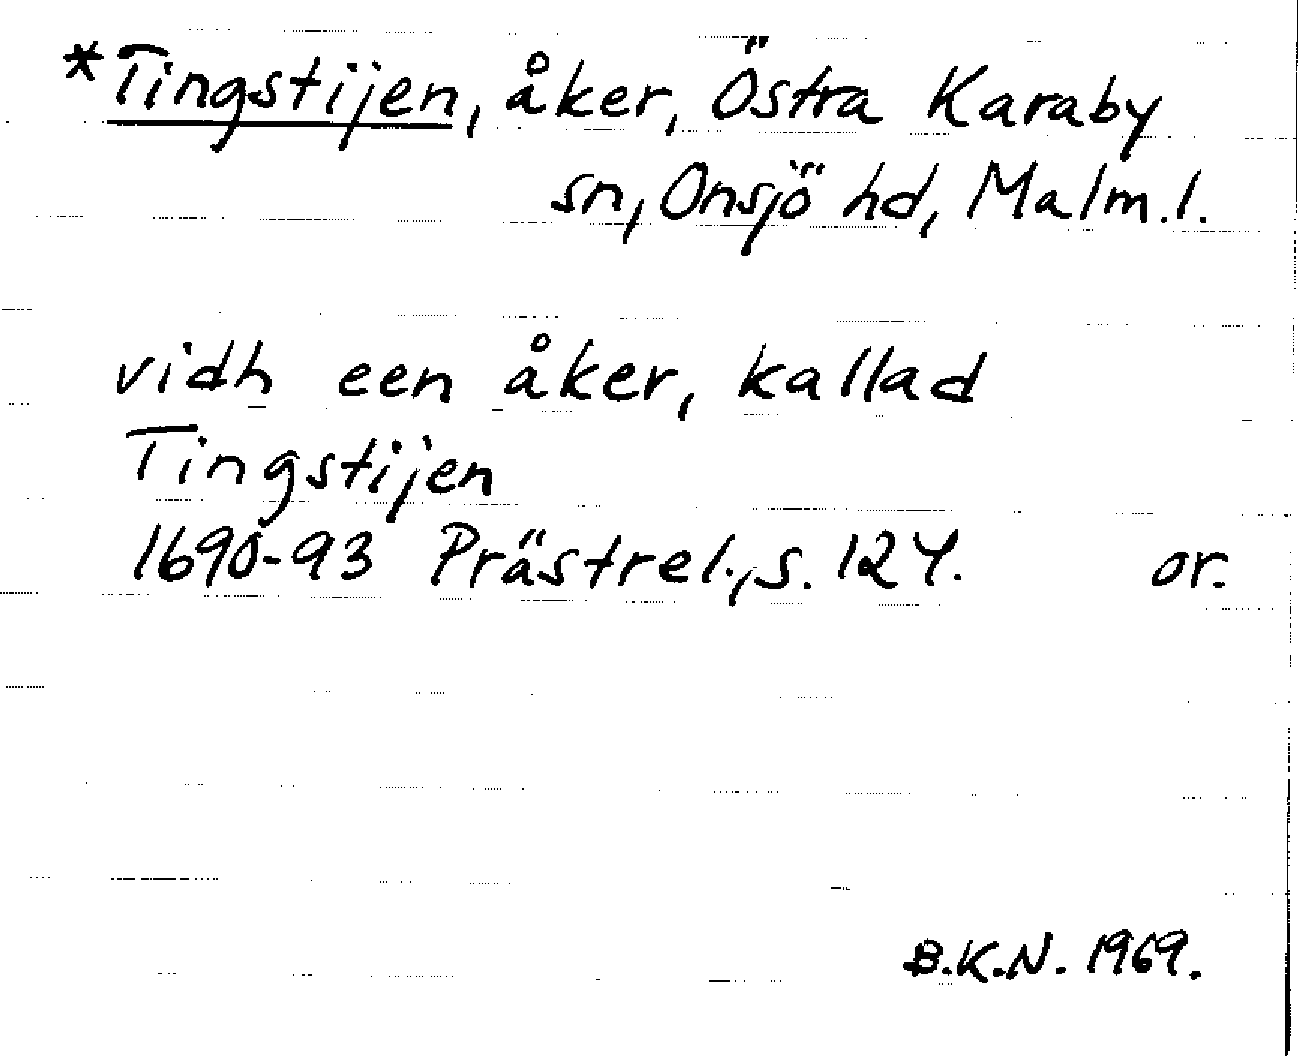 *Tingstijen, åker, Östra Karaby
sn, Onsjö hd, Malm.l.
vidh een åker, kallad
Tingstijen
1690-93 Prästrel., s. 124. or.
B.K.N. 1969.